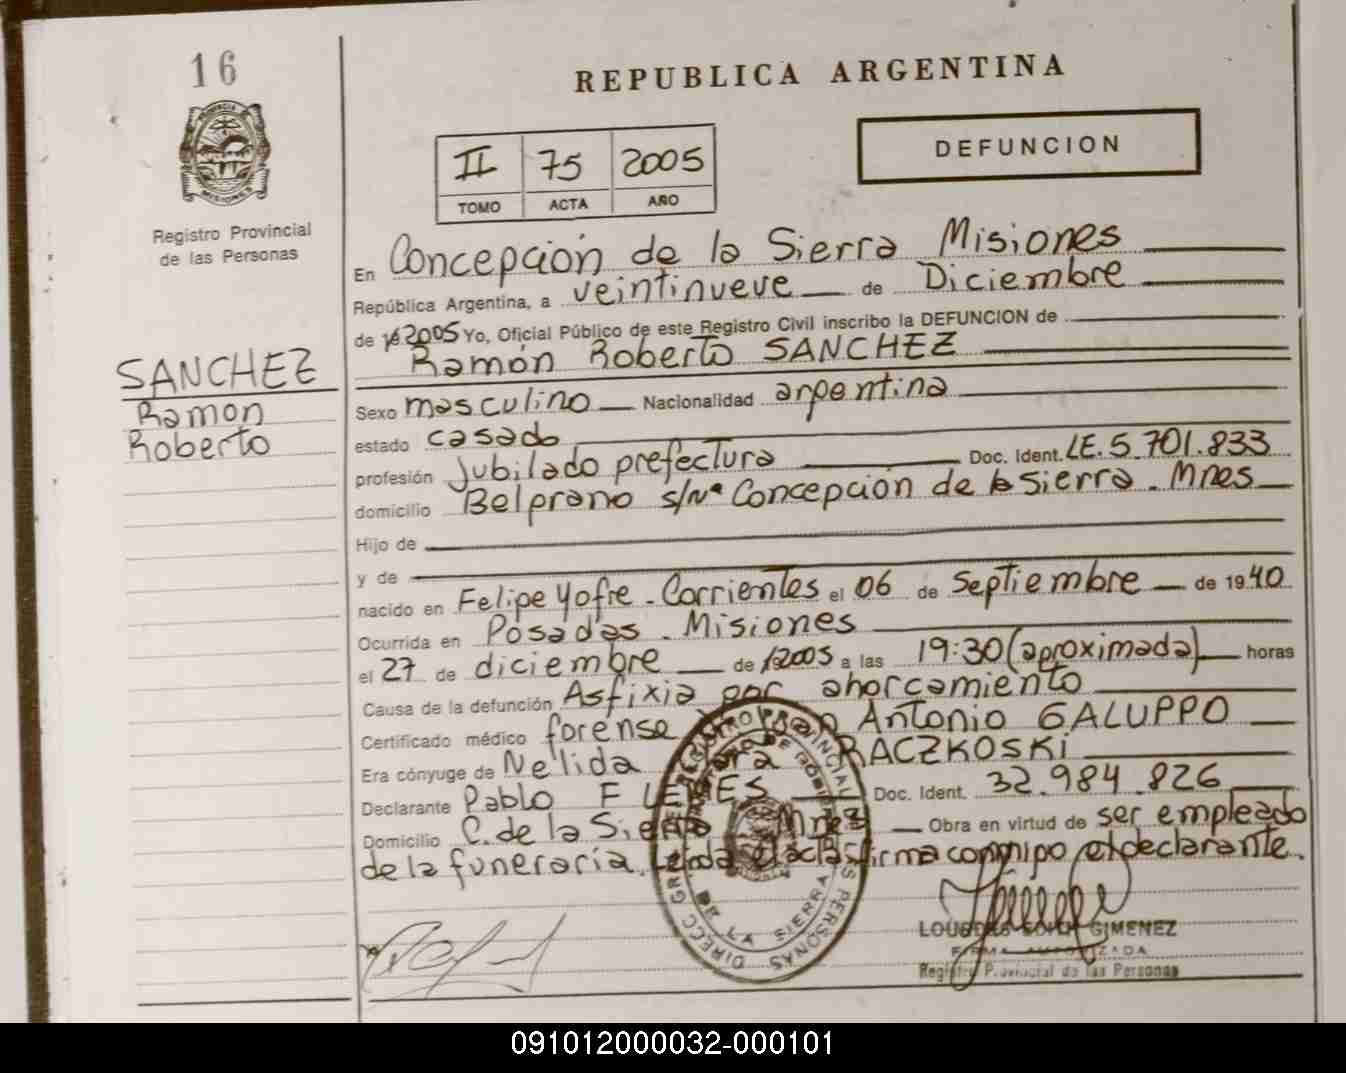 16
REPUBLICA ARGENTINA
DEFUNCION
II 75 2005
TOMO ACTA AÑO
PROVINCIA DE MISIONES
Registro Provincial
de las Personas
SANCHEZ
Ramon
Roberto
En Concepción de la Sierra Misiones
República Argentina, a veintinueve de Diciembre
de 2005 Yo, Oficial Público de este Registro Civil inscribo la DEFUNCION de
Ramón Roberto SANCHEZ
Sexo masculino Nacionalidad argentina
estado casado
profesión Jubilado prefectura Doc. Ident. LE. 5.701.833
domicilio Belgrano s/Nº Concepción de la Sierra - Mnes
Hijo de
y de
nacido en Felipe Yofre - Corrientes el 06 de Septiembre de 1940
Ocurrida en Posadas - Misiones
el 27 de diciembre de 2005 a las 19:30 (aproximada) horas
Causa de la defunción Asfixia por ahorcamiento
Certificado médico forense Antonio GALUPPO
Era cónyuge de Nelida RACZKOSKI
Declarante Pablo F Doc. Ident. 32.984.826
Domicilio C. de la Sierra Mnes Obra en virtud de ser empleado
de la funeraria. Leida el acta firma conmigo el declarante.
LOURDES GIMENEZ
FIRMA AUTORIZADA
Registro Provincial de las Personas
DE LA SIERRA
091012000032-000101